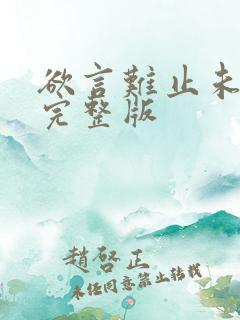 欲言難止未
完整版
趙啓正
未经同意禁止转载